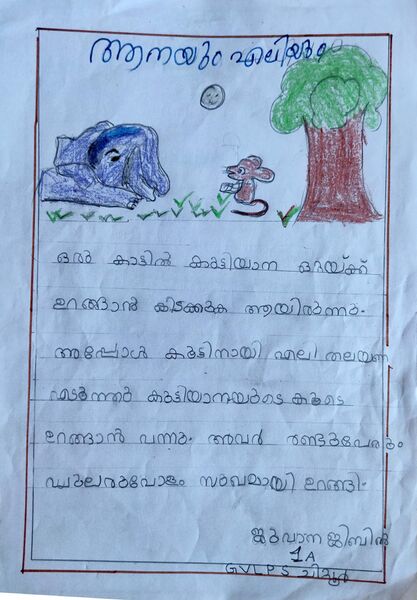 ആനയും എലിയും
ഒരു കാട്ടിൽ കുട്ടിയാന ഒറ്റയ്ക്ക്
ഉറങ്ങാൻ കിടക്കുക ആയിരുന്നു.
അപ്പോൾ കൂട്ടിനായി എലി തലയണ
എടുത്തു കുട്ടിയാനയുടെ കൂടെ
ഉറങ്ങാൻ വന്നു. അവർ രണ്ടുപേരും
പുലരുവോളം സുഖമായി ഉറങ്ങി.
ജുവാന ജിബിൻ
1A
GVLPS ചിറ്റൂർ